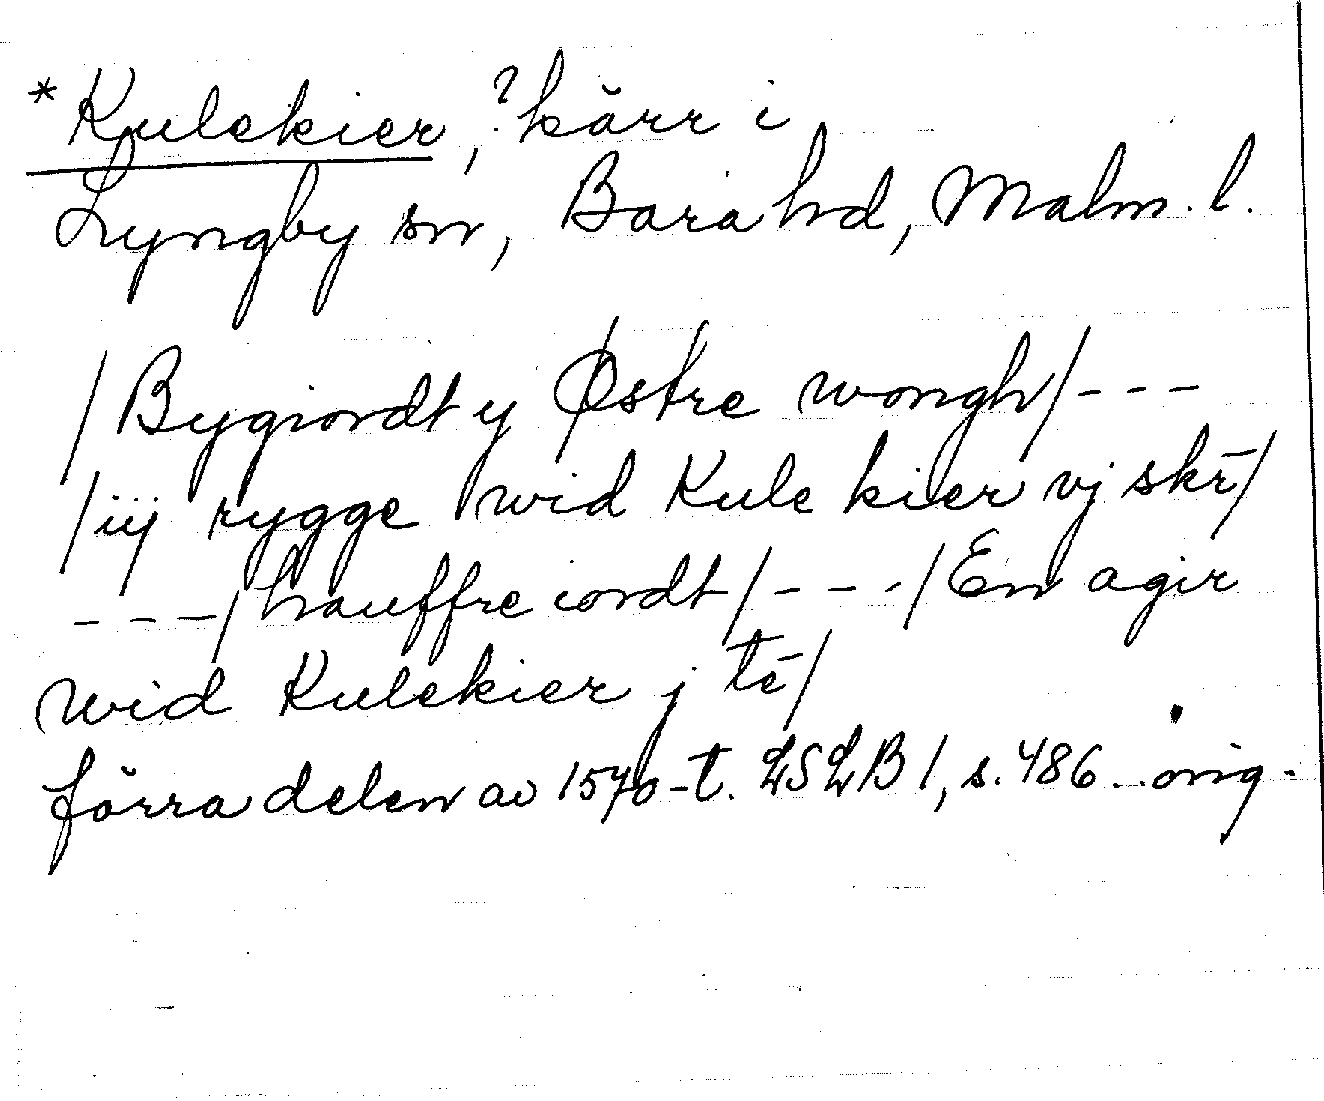 *Kulekier, ?kärr i
Lyngby sn, Bara hd, Malm. l.
/Bygiordt y Østre wongh/---
/iij rygge wid Kule kier vj skr̄/
---/hauffre iordt/---/En agir
wid Kulekier j tē/
förra delen av 1570-t. LSLB 1, s. 486. orig.